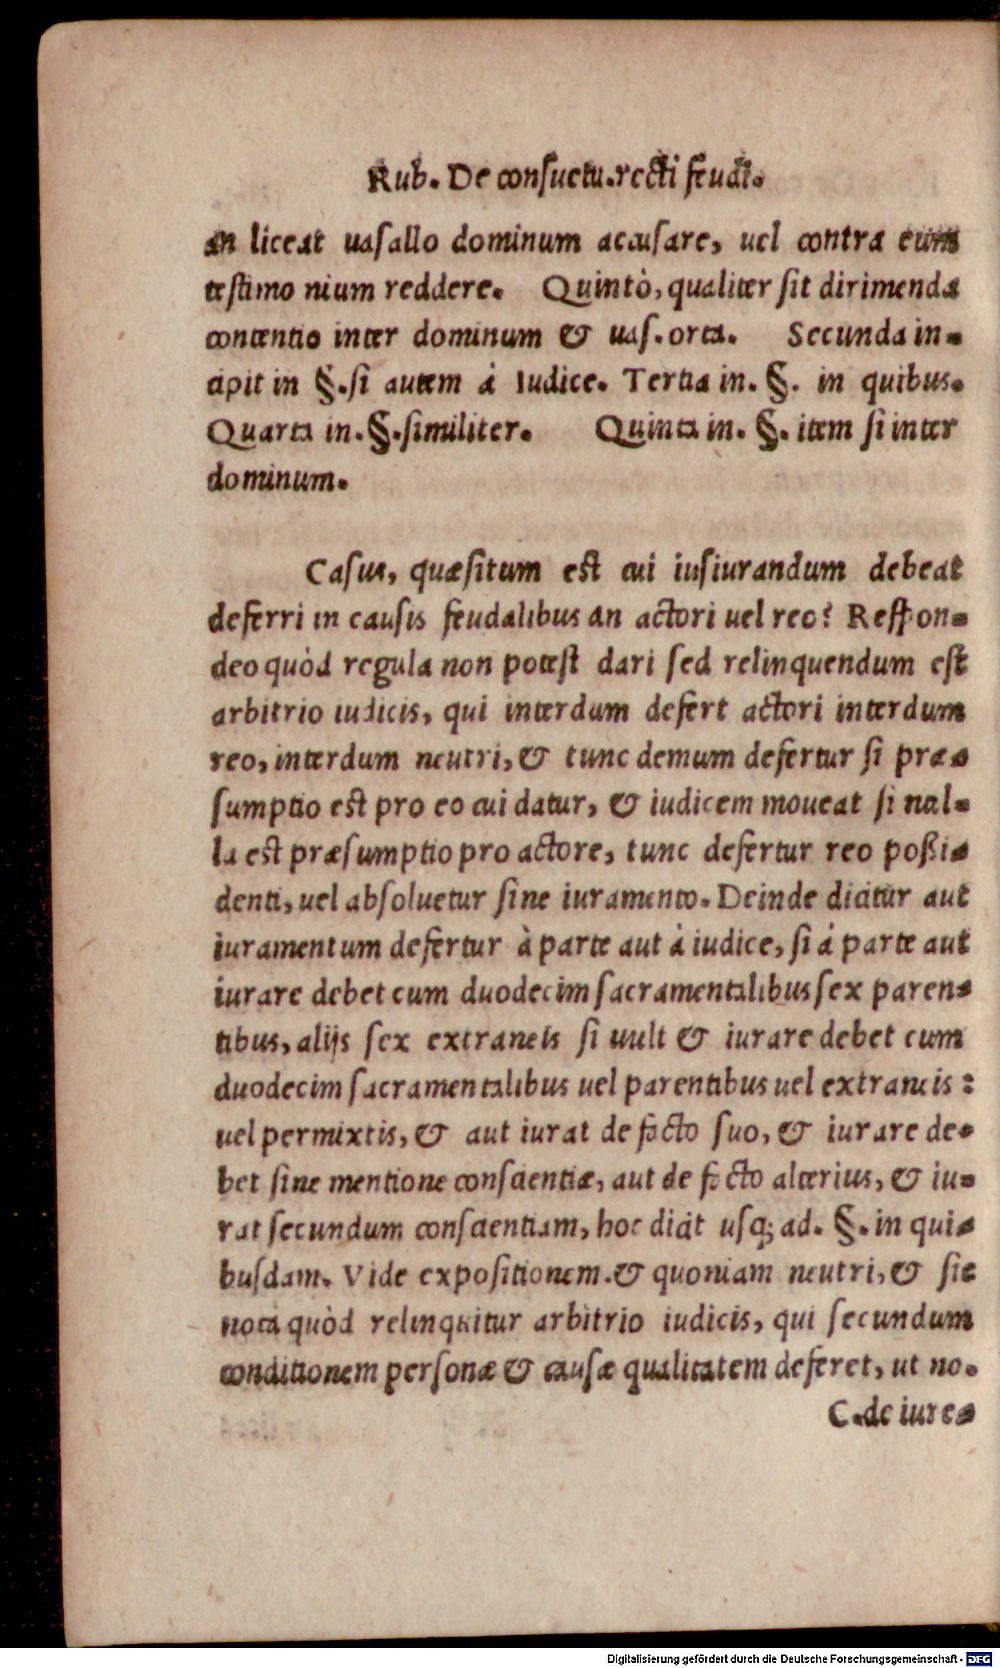 Rub. De consuetu.recti feudi.
an liceat uasallo dominum accusare, uel contra eum
testimo nium reddere. Quintò, qualiter sit dirimenda
contentio inter dominum & uas.orta. Secunda in-
cipit in §.si autem á Iudice. Tertia in. §. in quibus.
Quarta in.§.similiter. Quinta in. §. item si inter
dominum.
Casus, quæsitum est cui iusiurandum debeat
deferri in causis feudalibus an actori uel reo? Respon-
deo quòd regula non potest dari sed relinquendum est
arbitrio iudicis, qui interdum defert actori interdum
reo, interdum neutri, & tunc demum defertur si præ-
sumptio est pro eo cui datur, & iudicem moueat si nul-
la est præsumptio pro actore, tunc defertur reo possi-
denti, uel absoluetur sine iuramento. Deinde dicitur aut
iuramentum defertur à parte aut á iudice, si á parte aut
iurare debet cum duodecim sacramentalibus sex paren-
tibus, alijs sex extraneis si uult & iurare debet cum
duodecim sacramentalibus uel parentibus uel extraneis:
uel permixtis, & aut iurat de facto suo, & iurare de-
bet sine mentione conscientiæ, aut de facto alterius, & iu-
rat secundum conscientiam, hoc dicit usq; ad. §. in qui-
busdam. Vide expositionem.& quoniam neutri, & sic
nota quòd relinquitur arbitrio iudicis, qui secundum
conditionem personæ & causæ qualitatem deferet, ut no.
C.de iure-
Digitalisierung gefördert durch die Deutsche Forschungsgemeinschaft - DFG